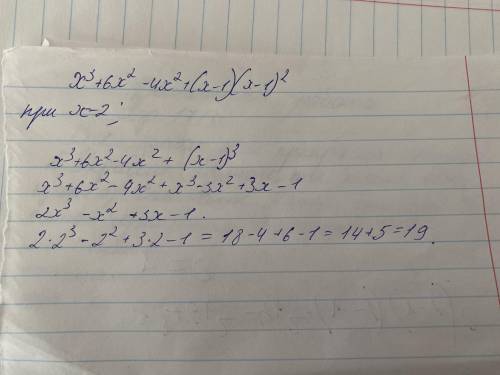 x³+6x²-4x²+(x-1)(x-1)²
при x=2;
x³+6x²-4x²+(x-1)³
x³+6x²-4x²+x³-3x²+3x-1
2x³-x²+3x-1.
2·2³-2²+3·2-1=18-4+6-1=14+5=19.